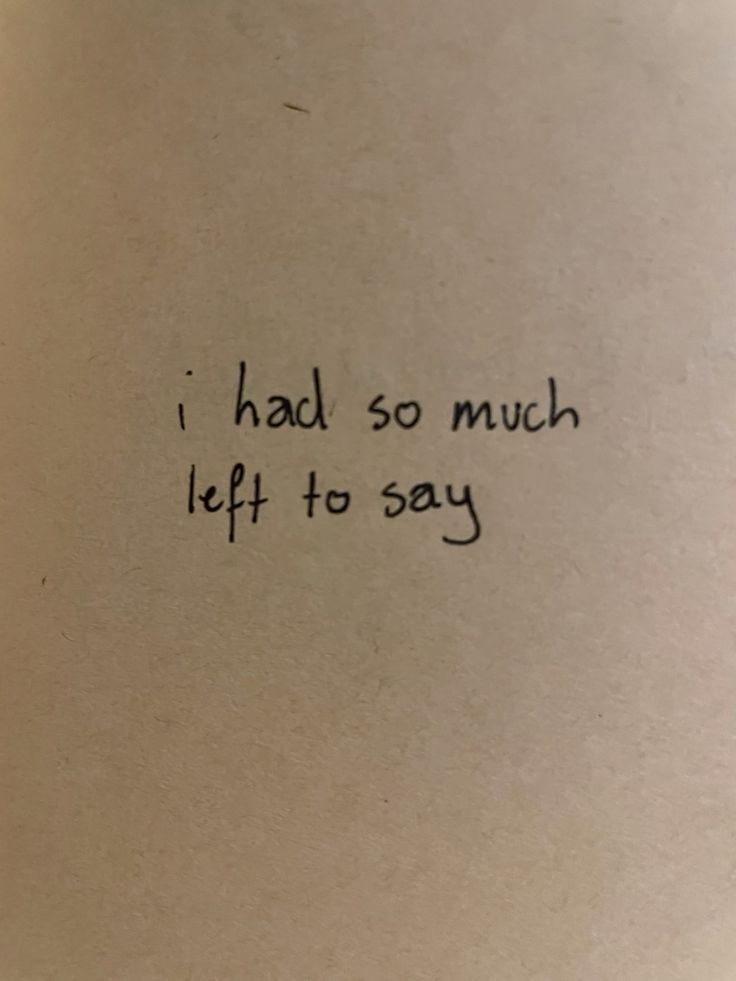 i had so much
left to say